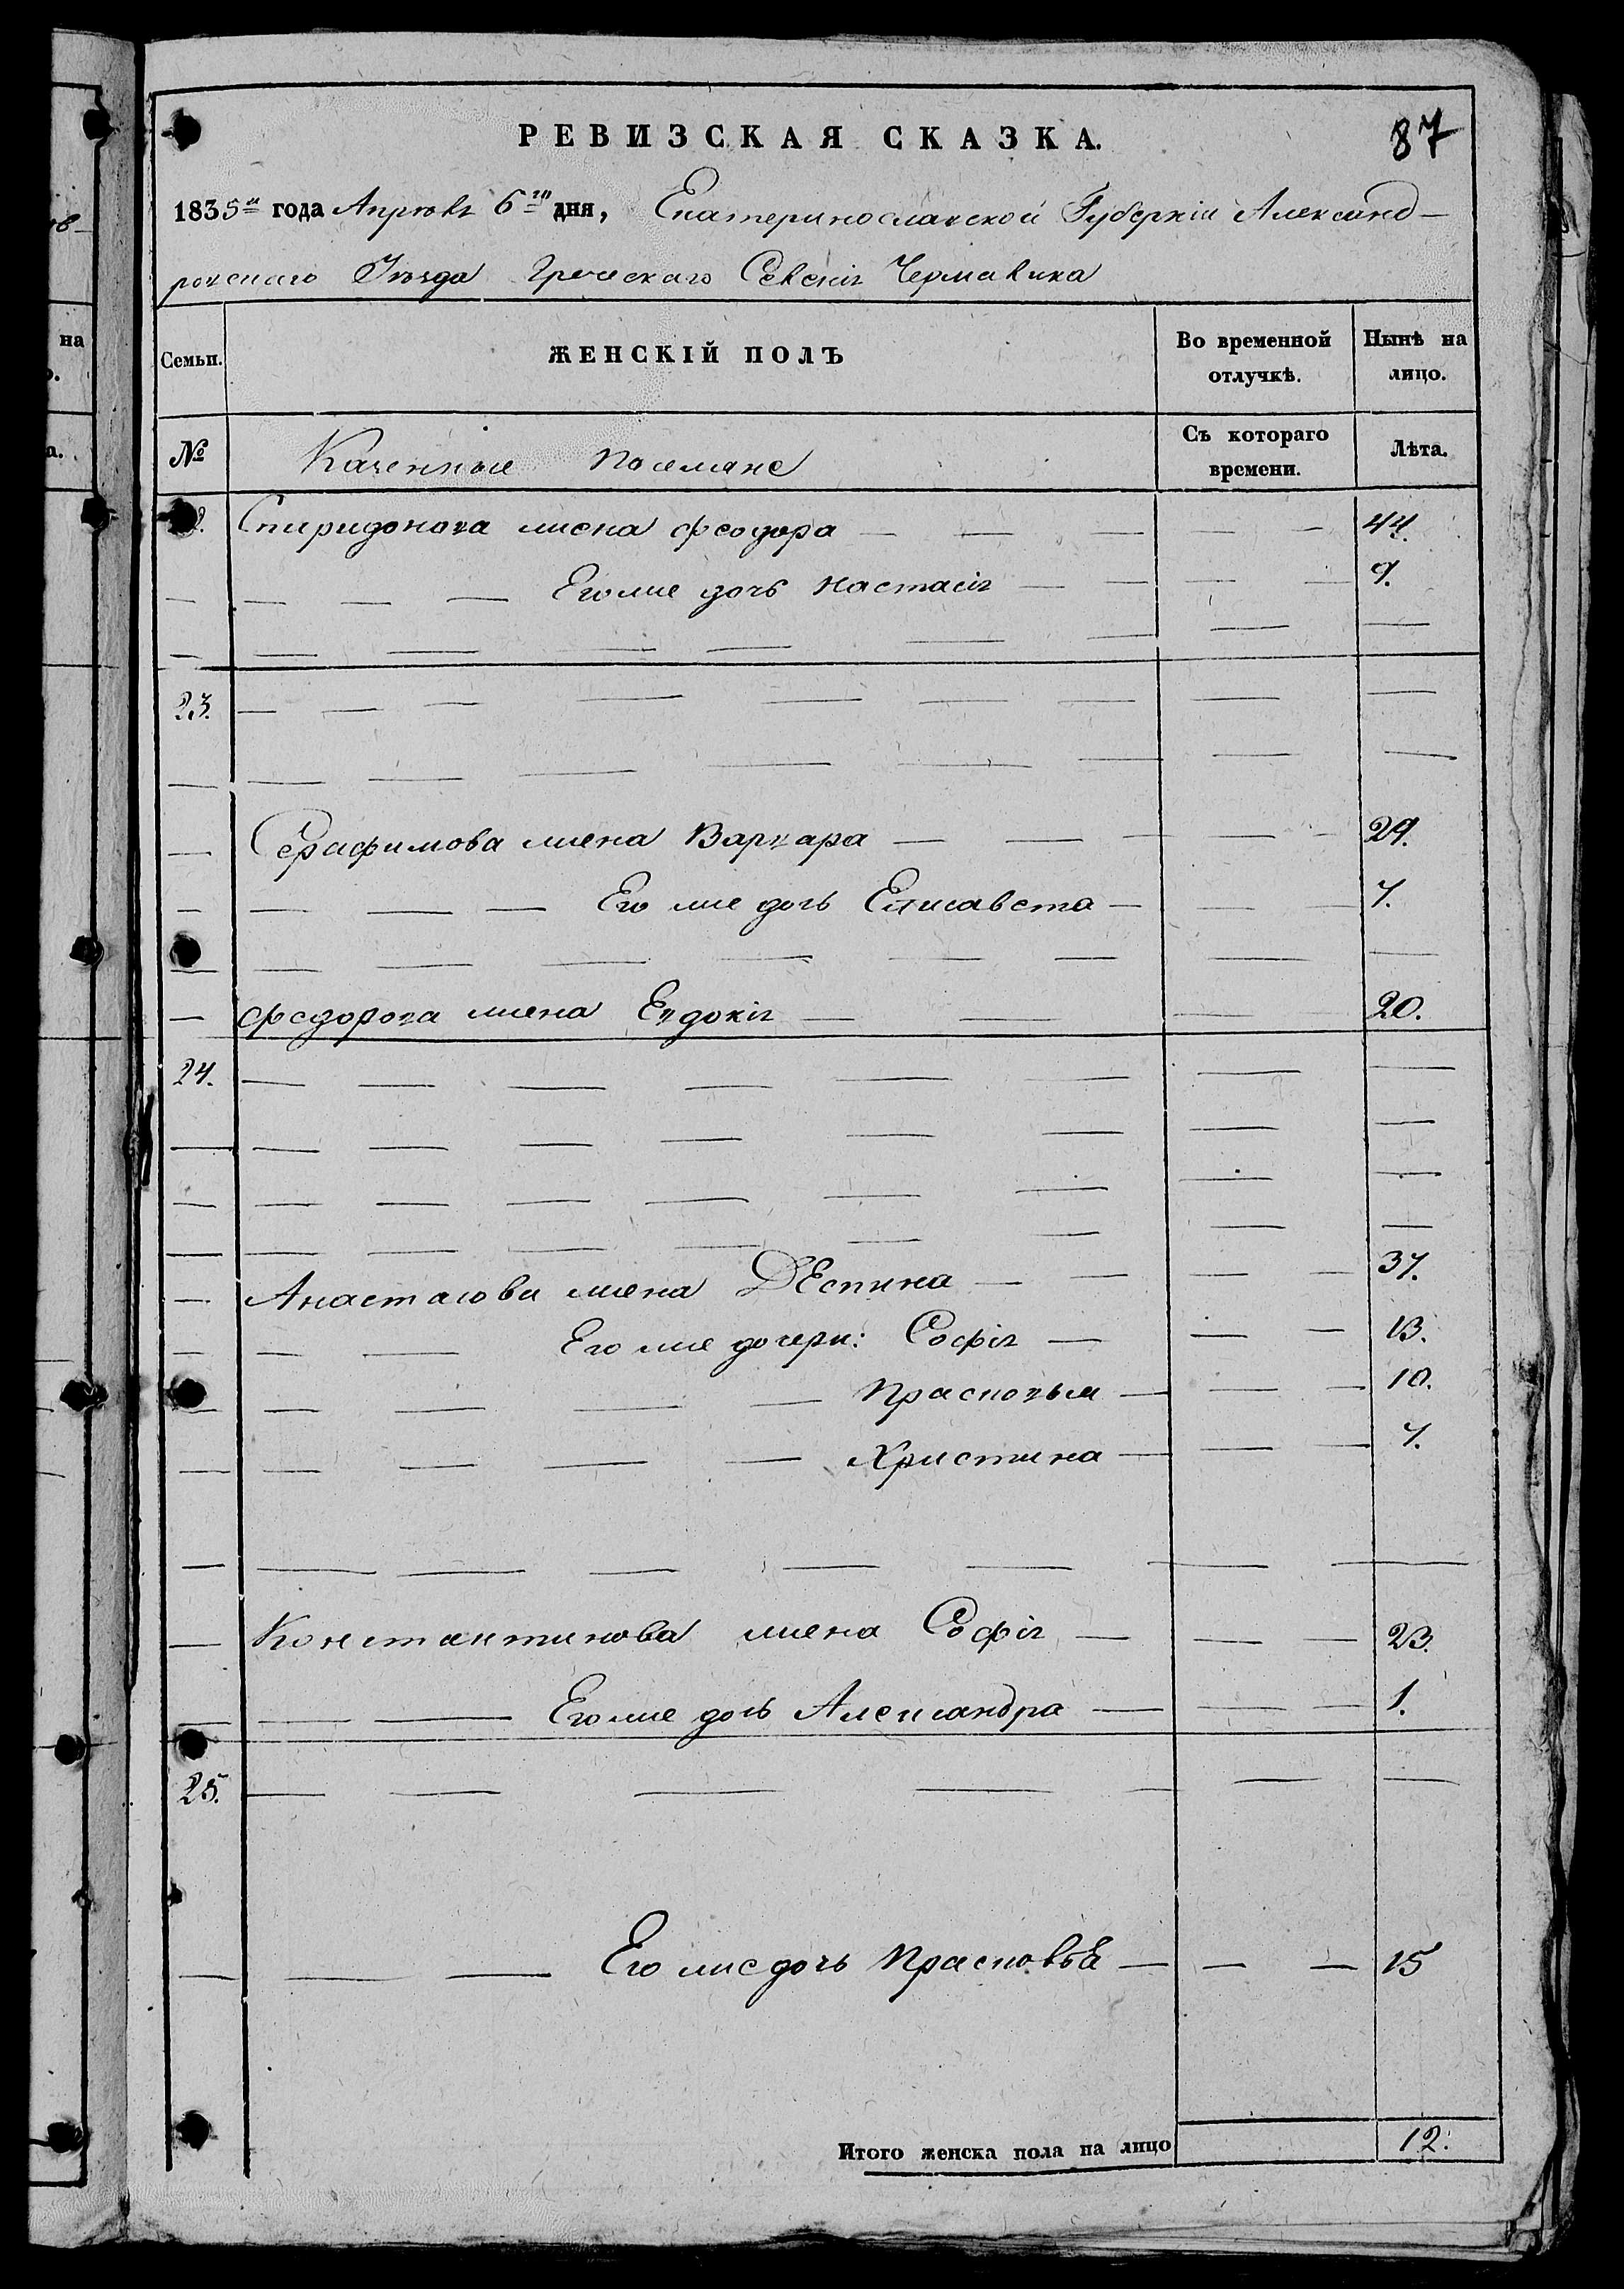 РЕВИЗСКАЯ СКАЗКА.
87
1835го года Апрѣля 6го дня, Екатеринославской Губерніи Александ-
ровскаго Уѣзда Греческаго Селенія Чермалика
Семьи.
ЖЕНСКІЙ ПОЛЪ
Во временной отлучкѣ.
Нынѣ на лицо.
№
Казенные поселяне
Съ котораго времени.
Лѣта.
Спиридонова жена Феодора — — — — — 44.
— — — — Его же дочь Настасія — — — — 9.
23.
— Серафимова жена Варвара — — — — — 29.
— — — — Его же дочь Елисавета — — — 7.
— Федорова жена Евдокія — — — — 20.
24.
— Анастасова жена Деспина — — — — 37.
— — — Его же дочери: Софія — — — 13.
Прасковья — — — 10.
Христина — — — 7.
— Константинова жена Софія — — — 23.
— — — Его же дочь Александра — — — 1.
25.
— — — Его же дочь Прасковья — — — 15
Итого женска пола на лицо
12.
на